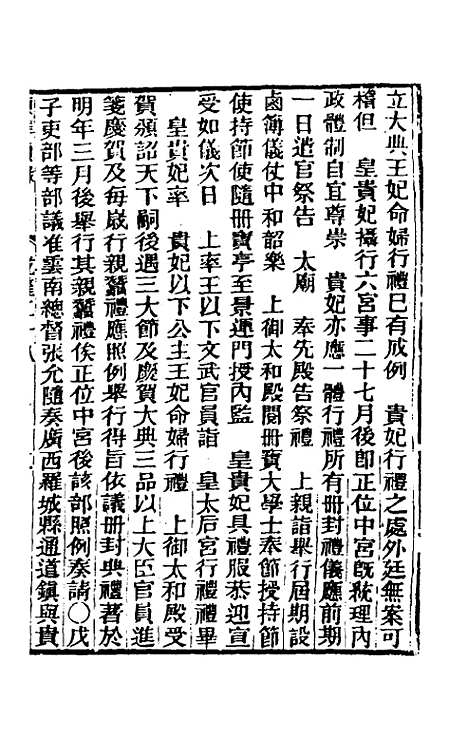 立大典王妃命婦行禮已有成例　貴妃行禮之處外廷無案可
稽但　皇貴妃攝行六宮事二十七月後卽正位中宮旣統理內
政體制自宜尊崇　貴妃亦應一體行禮所有冊封禮儀應前期
一日遣官祭告　太廟　奉先殿告祭禮　上親詣舉行屆期設
鹵簿儀仗中和韶樂　上御太和殿閱冊寶大學士奉節授持節
使持節使隨冊寶亭至景運門授內監　皇貴妃具禮服恭迎宣
受如儀次日　上率王以下文武官員詣　皇太后宮行禮禮畢
　皇貴妃率　貴妃以下公主王妃命婦行禮　上御太和殿受
賀頒詔天下嗣後遇三大節及慶賀大典三品以上大臣官員進
箋慶賀及每歲行親蠶禮應照例舉行得旨依議冊封典禮著於
明年三月後舉行其親蠶禮俟正位中宮後該部照例奏請○戊
子吏部等部議准雲南總督張允隨奏廣西羅城縣通道鎮與貴